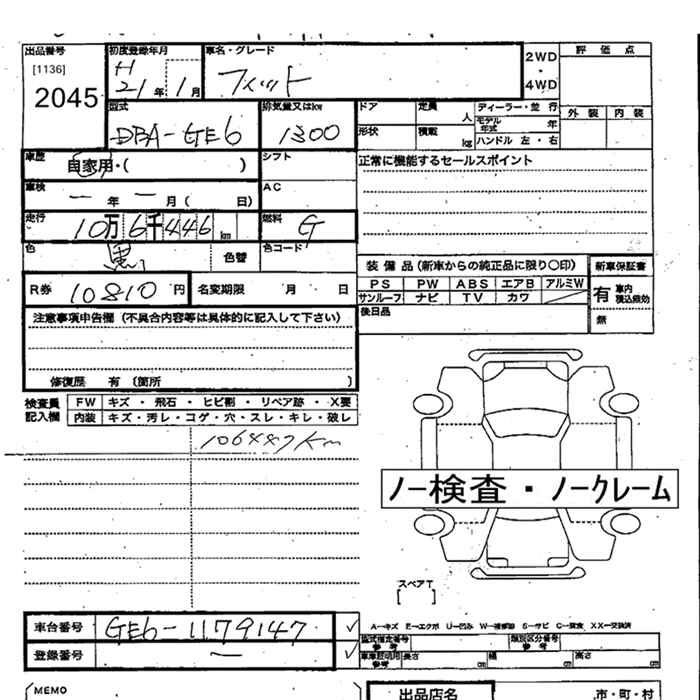 出品番号
[1136]
2045
初度登録年月
H
21年 1月
車名・グレード
フィット
2WD
・
4WD
評価点
外装 内装
型式
DBA-GE6
排気量又はkw
1300
ドア
定員 人
ディーラー・並行
モデル年式 年
形状
積載 kg
ハンドル 左・右
車歴
自家用・( )
シフト
正常に機能するセールスポイント
車検
ー 年 ー 月( 日)
AC
走行
10万6千446km
燃料
G
色
黒
色替
色コード
R券
10810円
名変期限 月 日
装備品(新車からの純正品に限り○印)
PS PW ABS エアB アルミW
サンルーフ ナビ TV カワ
新車保証書
有 車内 積込無効
無
後日品
注意事項申告欄(不具合内容等は具体的に記入して下さい)
修復歴 有 (箇所 )
検査員記入欄
FW キズ・飛石・ヒビ割・リペア跡・X要
内装 キズ・汚レ・コゲ・穴・スレ・キレ・破レ
106487km
ノー検査・ノークレーム
スペアT
[ ]
車台番号
GE6-1179147
✓
登録番号
ー
✓
A−キズ E−エクボ U−凹ミ W−補修跡 S−サビ C−腐食 XX−交換済
型式指定番号 参考
類別区分番号 参考
車車証明用 参考 長さ cm 幅 cm 高さ cm
MEMO
出品店名
市・町・村